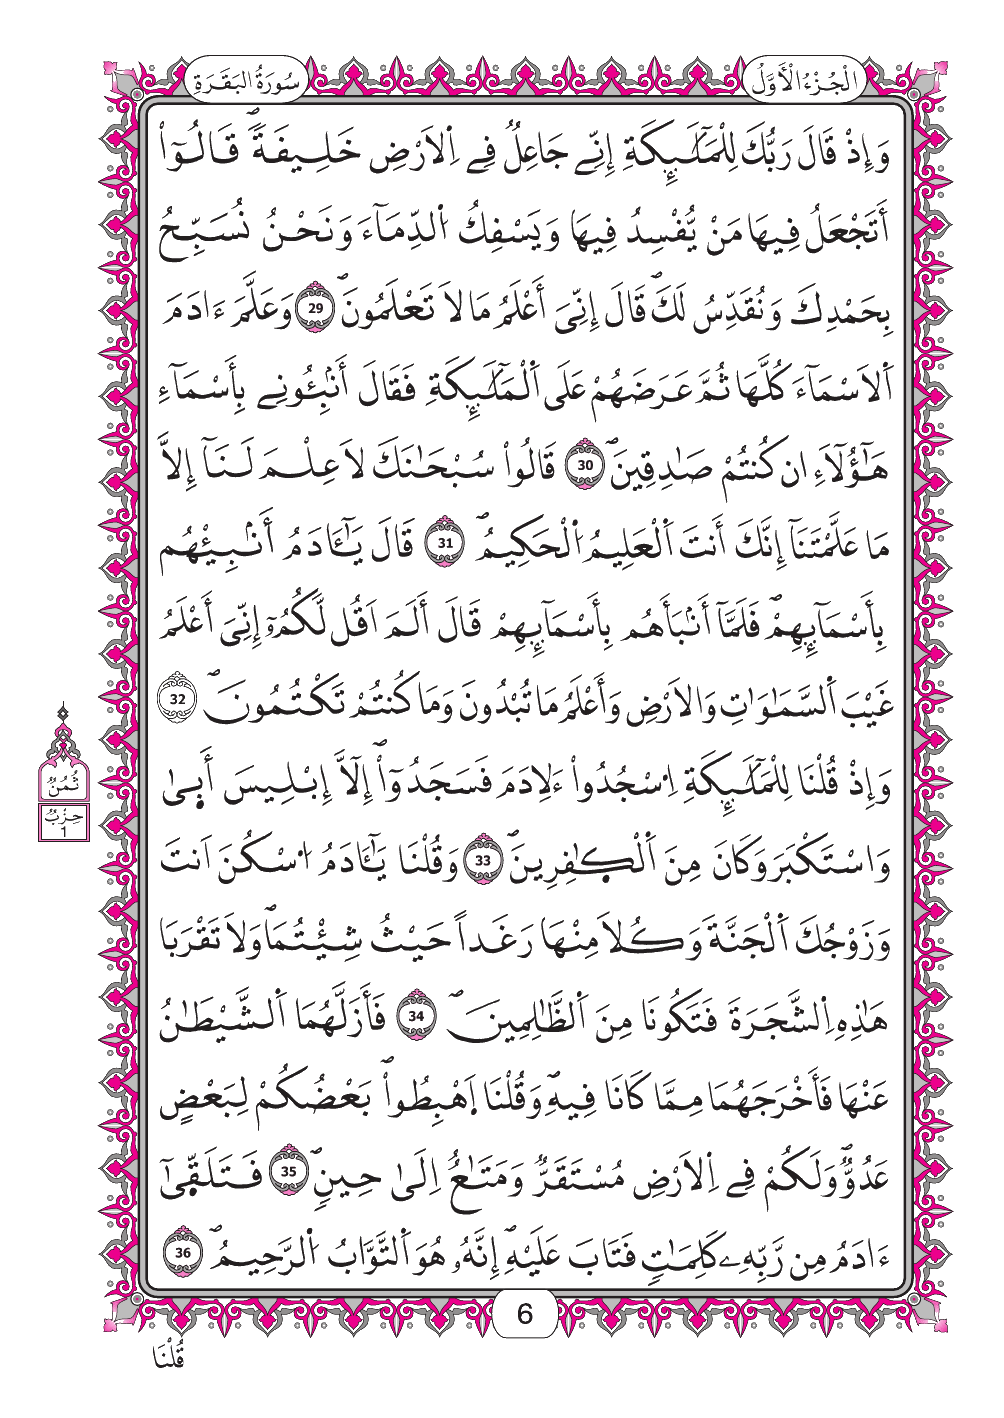 الْجُزْءُ الْأَوَّلُ
سُورَةُ الْبَقَرَةِ
وَإِذْ قَالَ رَبُّكَ لِلْمَلَٰٓئِكَةِ إِنِّے جَاعِلٞ فِے اِ۬لَارْضِ خَلِيفَةٗۖ قَالُوٓاْ
أَتَجْعَلُ فِيهَا مَنْ يُّفْسِدُ فِيهَا وَيَسْفِكُ اُ۬لدِّمَآءَ وَنَحْنُ نُسَبِّحُ
بِحَمْدِكَ وَنُقَدِّسُ لَكَۖ قَالَ إِنِّيَ أَعْلَمُ مَا لَا تَعْلَمُونَۖ 29 وَعَلَّمَ ءَادَمَ
اَ۬لَاسْمَآءَ كُلَّهَا ثُمَّ عَرَضَهُمْ عَلَى اَ۬لْمَلَٰٓئِكَةِ فَقَالَ أَنۢبِـُٔونِے بِأَسْمَآءِ
هَٰٓؤُلَآءِ ان كُنتُمْ صَٰدِقِينَۖ 30 قَالُواْ سُبْحَٰنَكَ لَا عِلْمَ لَنَآ إِلَّا
مَا عَلَّمْتَنَآ إِنَّكَ أَنتَ اَ۬لْعَلِيمُ اُ۬لْحَكِيمُۖ 31 قَالَ يَٰٓـَٔادَمُ أَنۢبِئْهُم
بِأَسْمَآئِهِمْۖ فَلَمَّآ أَنۢبَأَهُم بِأَسْمَآئِهِمْ قَالَ أَلَمَ اَقُل لَّكُمُۥٓ إِنِّيَ أَعْلَمُ
غَيْبَ اَ۬لسَّمَٰوَٰتِ وَالَارْضِ وَأَعْلَمُ مَا تُبْدُونَ وَمَا كُنتُمْ تَكْتُمُونَۖ 32
وَإِذْ قُلْنَا لِلْمَلَٰٓئِكَةِ اِ۟سْجُدُواْ ءَلِادَمَ فَسَجَدُوٓاْۖ إِلَّآ إِبْلِيسَ أَب۪يٰ
وَاسْتَكْبَرَ وَكَانَ مِنَ اَ۬لْكٰ۪فِرِينَۖ 33 وَقُلْنَا يَٰٓـَٔادَمُ اُ۟سْكُنَ اَنتَ
وَزَوْجُكَ اَ۬لْجَنَّةَ وَكُلَا مِنْهَا رَغَداً حَيْثُ شِئْتُمَاۖ وَلَا تَقْرَبَا
هَٰذِهِ اِ۬لشَّجَرَةَ فَتَكُونَا مِنَ اَ۬لظَّٰلِمِينَۖ 34 فَأَزَلَّهُمَا اَ۬لشَّيْطَٰنُ
عَنْهَا فَأَخْرَجَهُمَا مِمَّا كَانَا فِيهِۖ وَقُلْنَا اَ۪هْبِطُواْۖ بَعْضُكُمْ لِبَعْضٍ
عَدُوّٞۖ وَلَكُمْ فِے اِ۬لَارْضِ مُسْتَقَرّٞ وَمَتَٰعٌ اِلَىٰ حِينٖۖ 35 فَتَلَقّ۪ىٰٓ
ءَادَمُ مِن رَّبِّهِۦ كَلِمَٰتٖ فَتَابَ عَلَيْهِۖ إِنَّهُۥ هُوَ اَ۬لتَّوَّابُ اُ۬لرَّحِيمُۖ 36
ثُمُنٌ
حِزْبُ
1
6
قُلْنَا